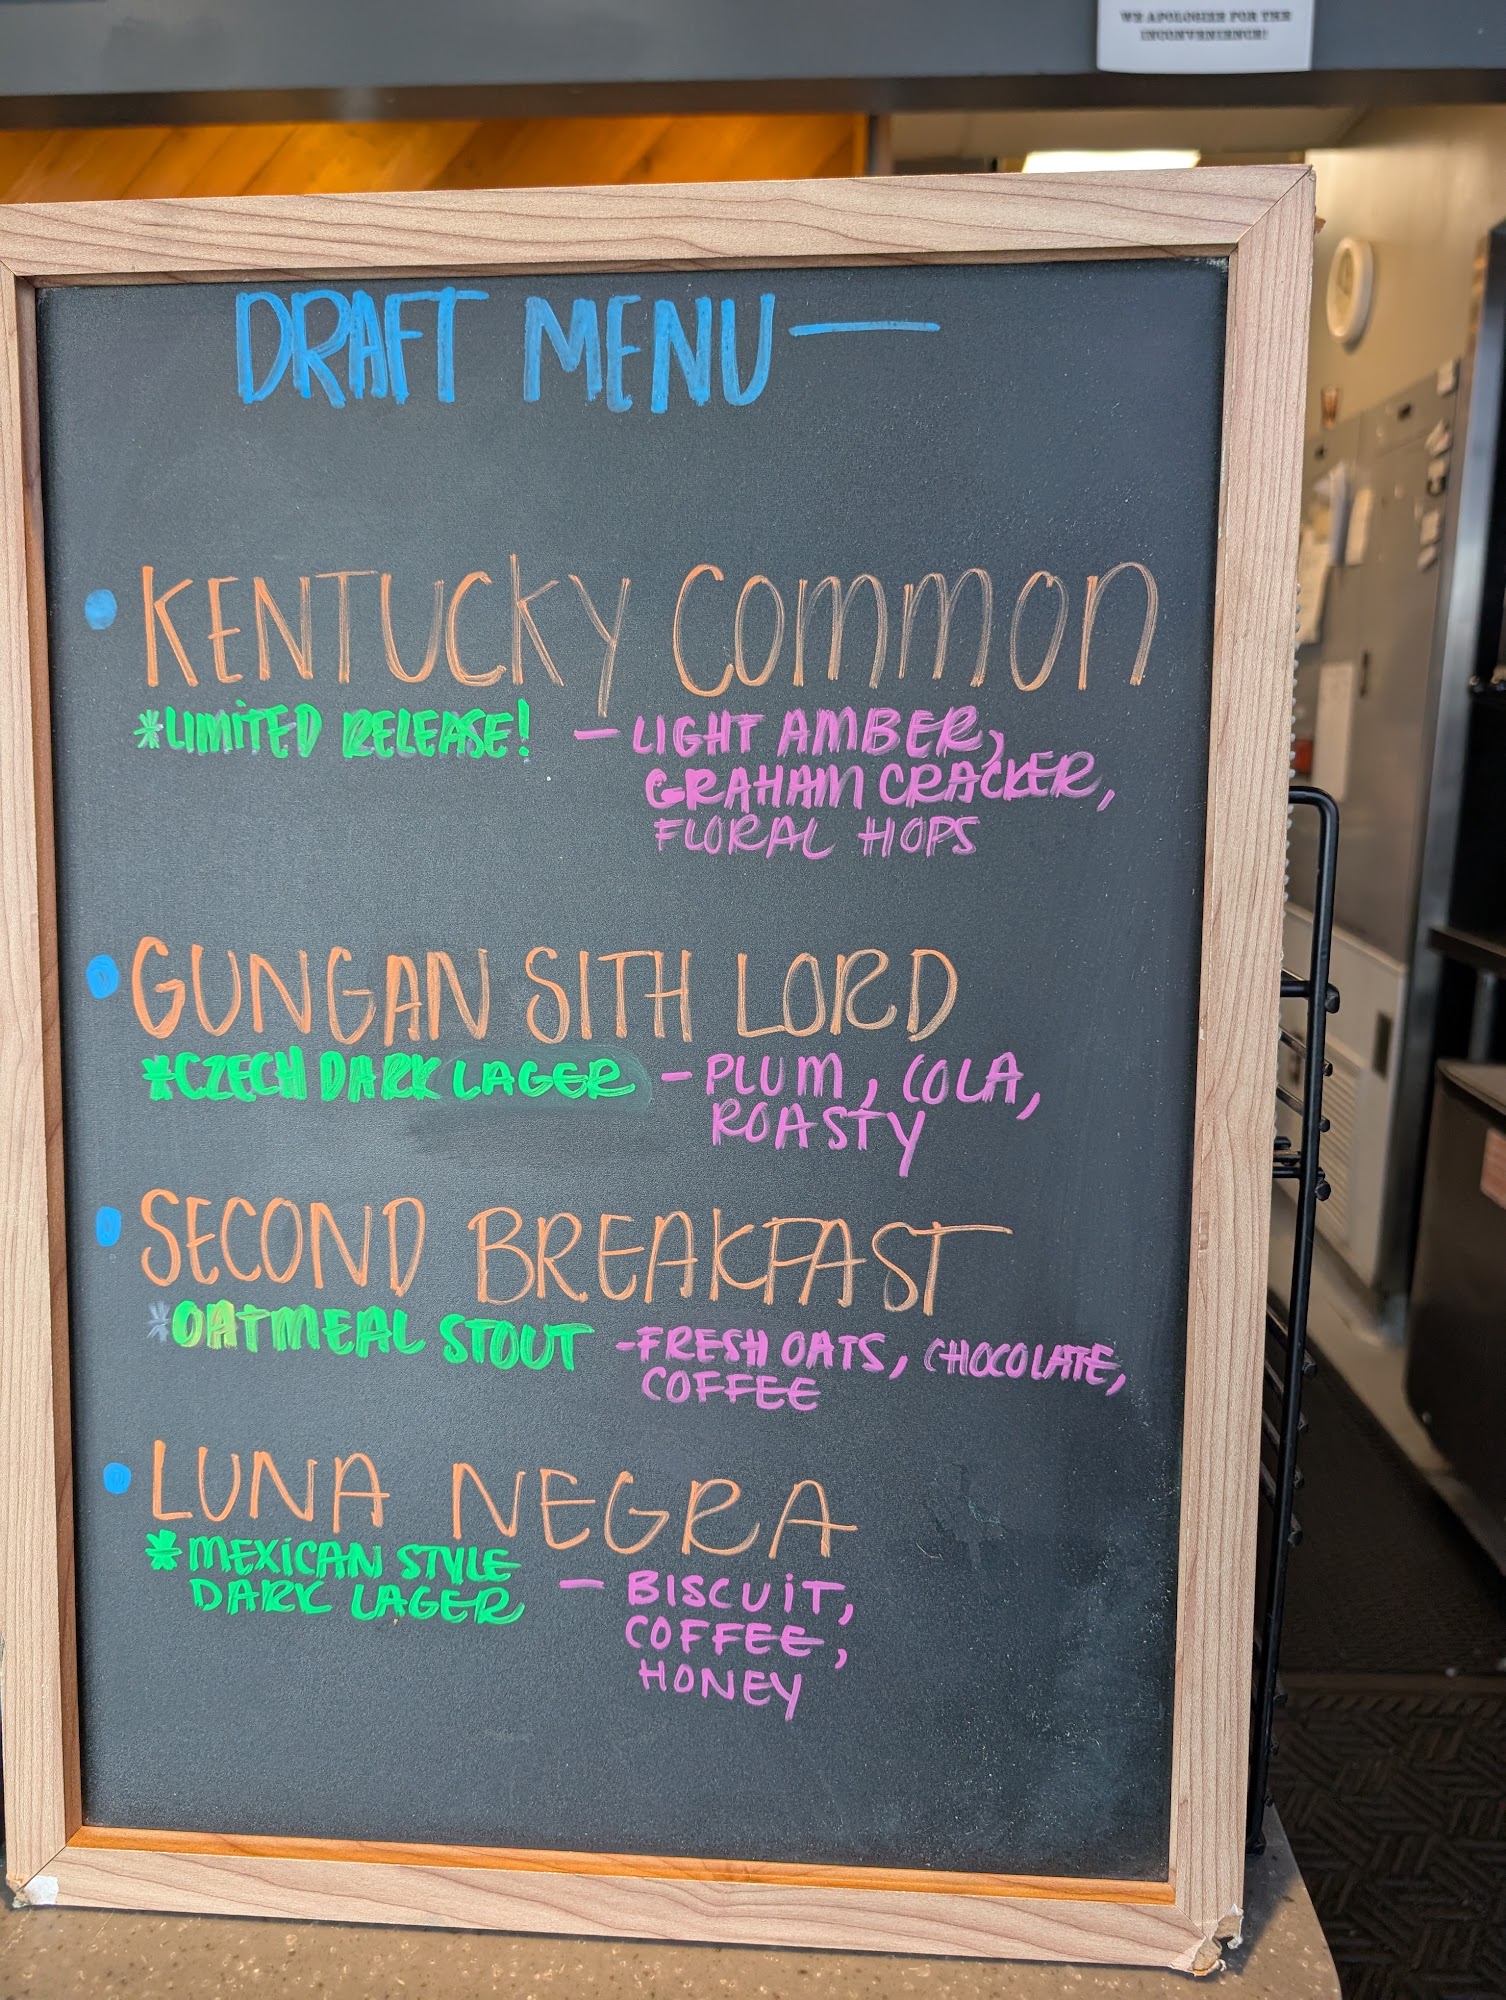 WE APOLOGIZE FOR THE
INCONVENIENCE!
DRAFT MENU—
• KENTUCKY COMMON
*LIMITED RELEASE! — LIGHT AMBER,
GRAHAM CRACKER,
FLORAL HOPS
• GUNGAN SITH LORD
*CZECH DARK LAGER — PLUM, COLA,
ROASTY
• SECOND BREAKFAST
*OATMEAL STOUT -FRESH OATS, CHOCOLATE,
COFFEE
• LUNA NEGRA
* MEXICAN STYLE
DARK LAGER — BISCUIT,
COFFEE,
HONEY